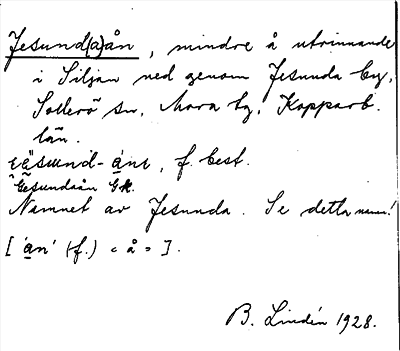 Jesund(a)ån, mindre å utrinnande
i Siljan ned genom Jesunda by,
Sollerö sn, Mora tg, Kopparb.
län.
f. best.
Gesundaån GK.
Namnet av Jesunda. Se detta namn!
[ 'ån' (f.) < å > ].
B. Lindén 1928.